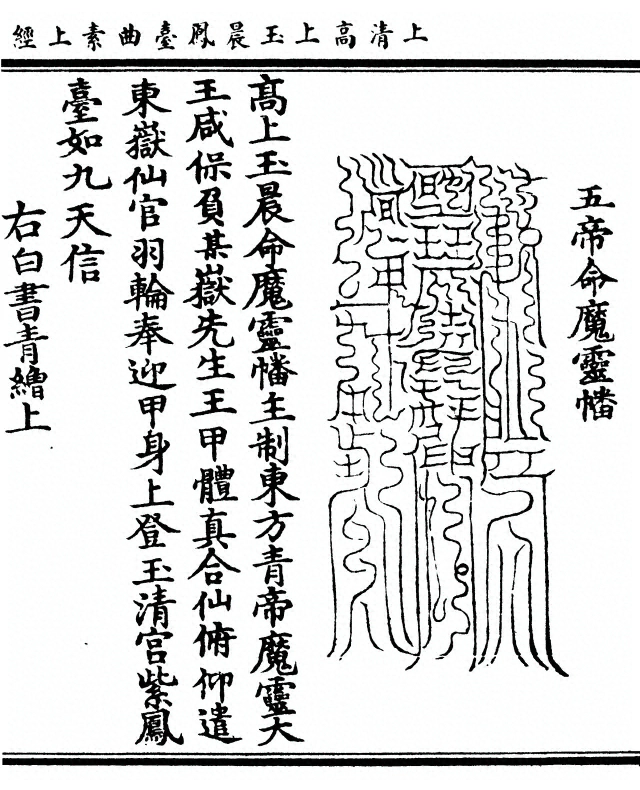 上清高上玉晨鳳臺曲素上經
五帝命魔靈幡
高上玉晨命魔靈幡主制東方青帝魔靈大
王咸保負某嶽先生王甲體真合仙俯仰遣
東嶽仙官羽輪奉迎甲身上登玉清宮紫鳳
臺如九天信
右白書青繒上